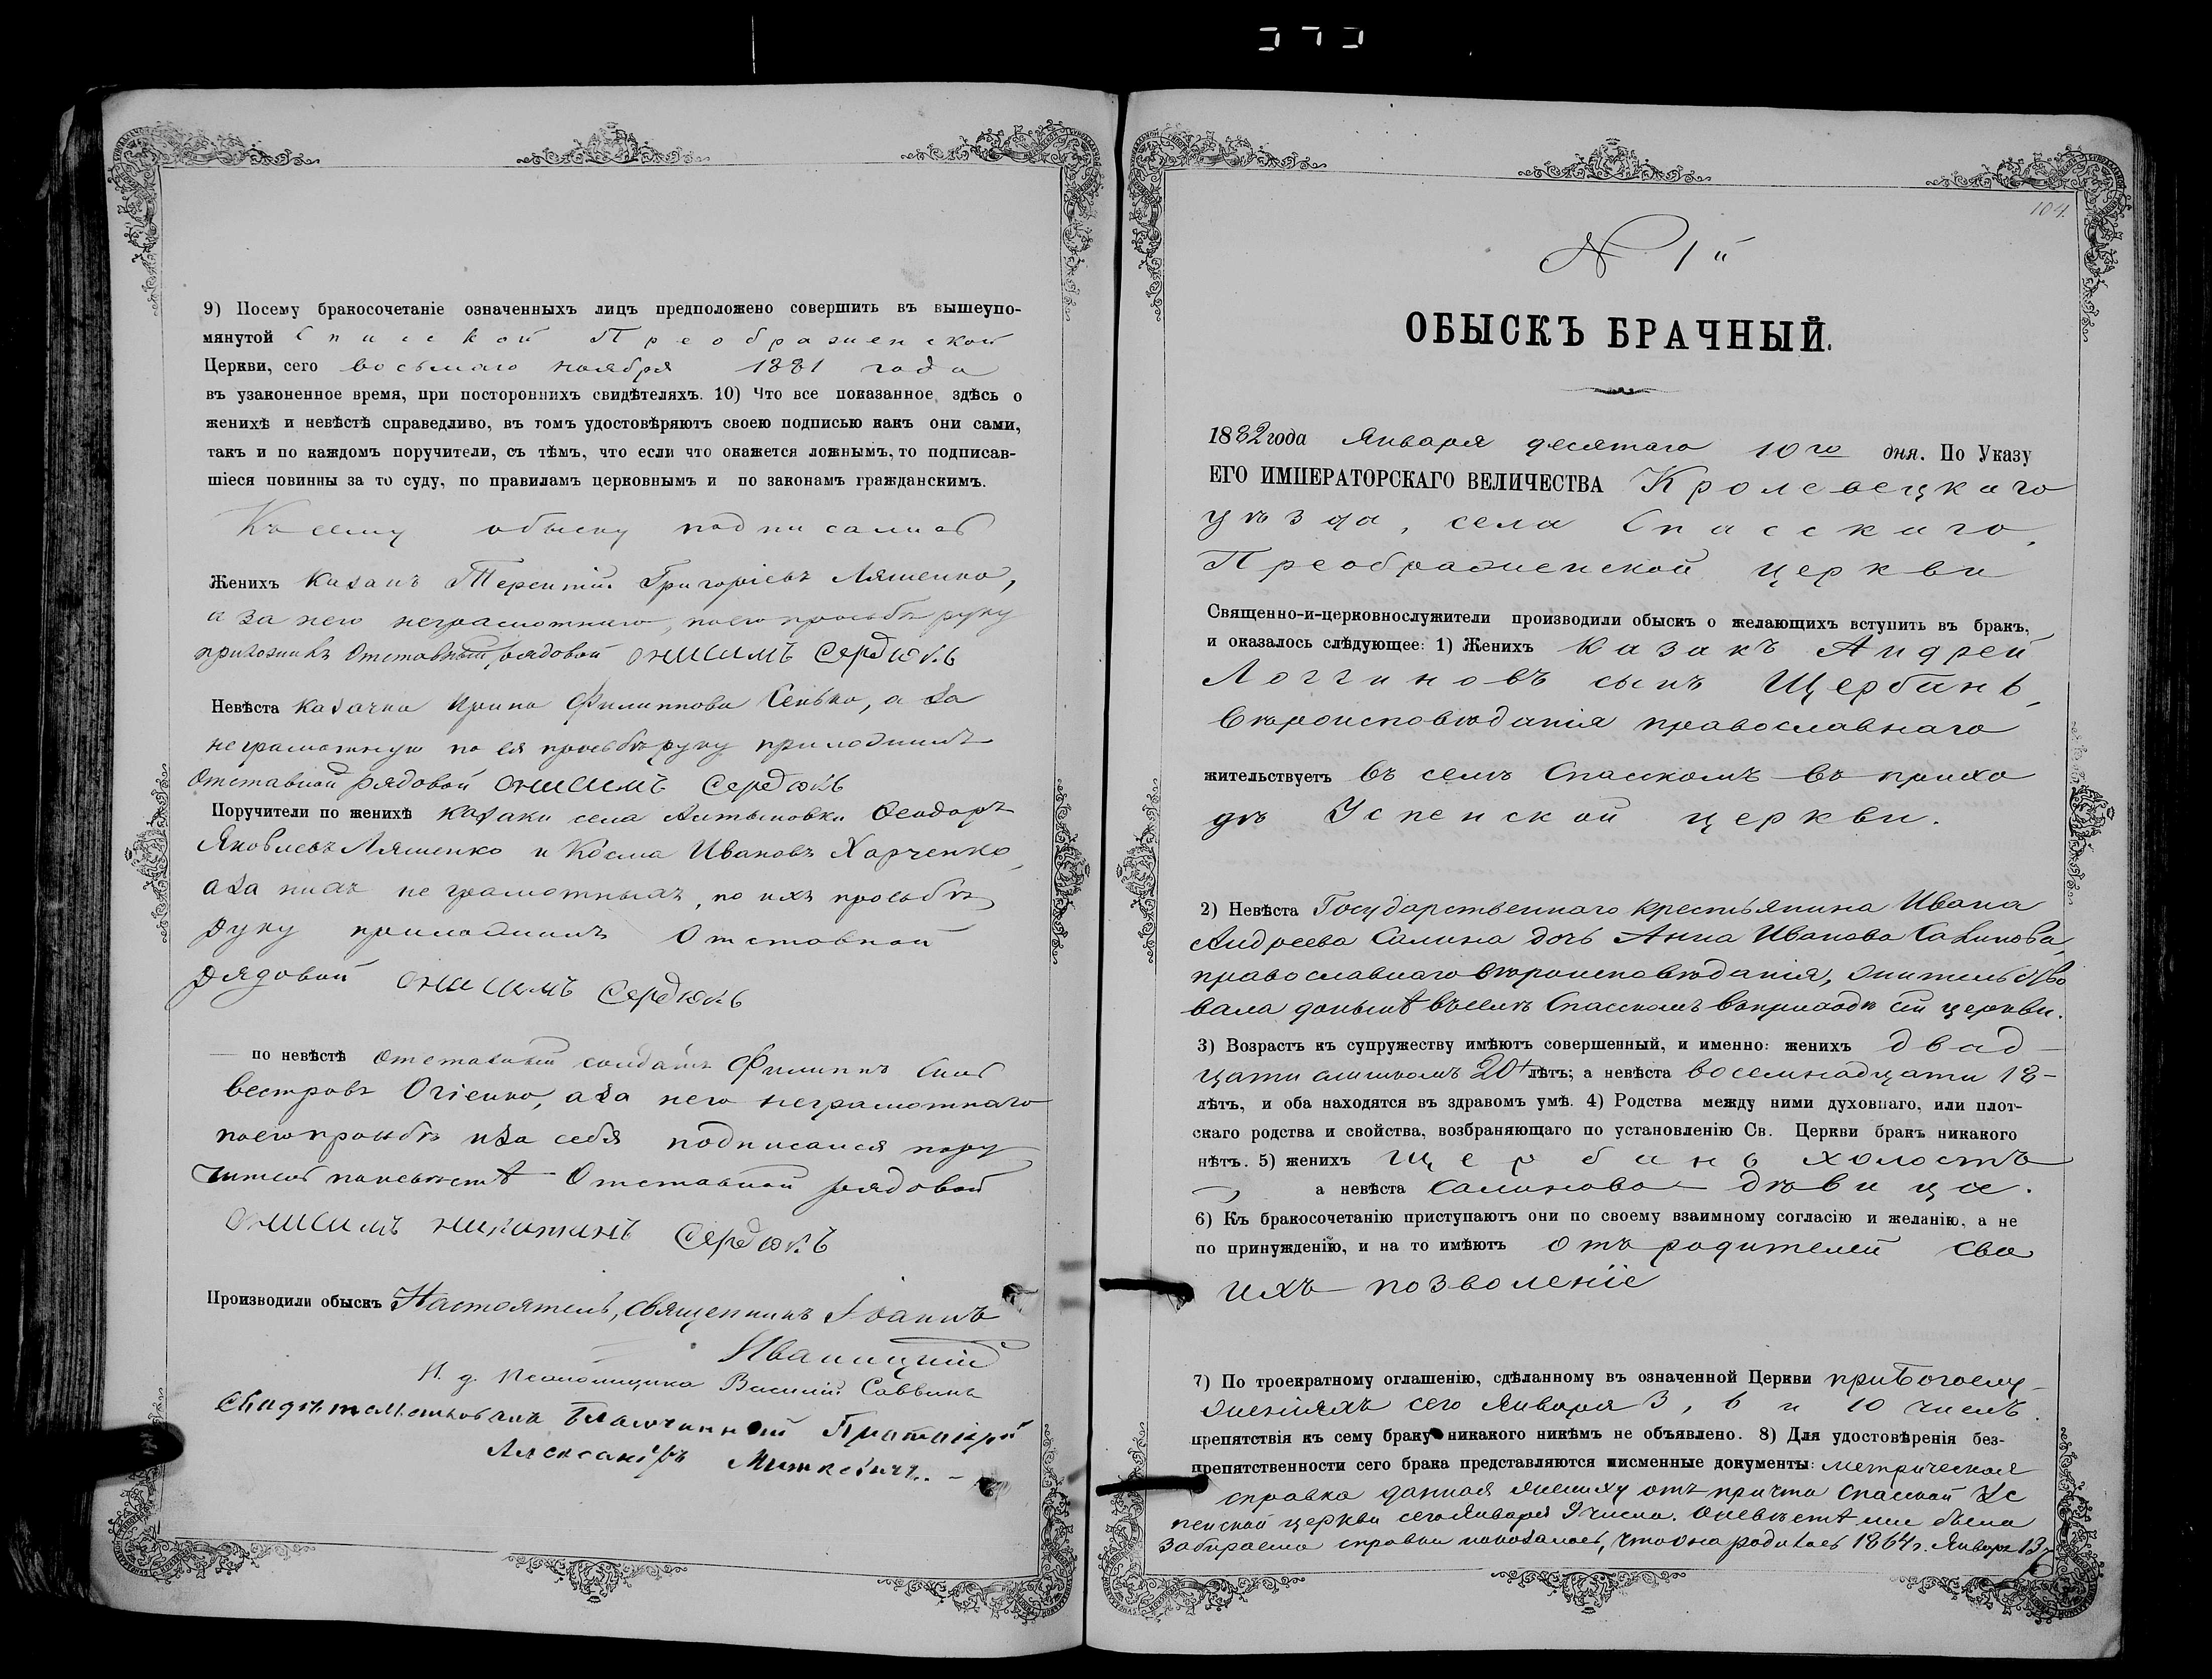 9) Посему бракосочетаніе означенныхъ лицъ предположено совершить въ вышеупо-
мянутой Спасской Преображенской
Церкви, сего восьмаго ноября 1881 года
въ узаконенное время, при постороннихъ свидѣтеляхъ. 10) Что все показанное здѣсь о
женихѣ и невѣстѣ справедливо, въ томъ удостовѣряютъ своею подписью какъ они сами,
такъ и по каждомъ поручители, съ тѣмъ, что если что окажется ложнымъ, то подписав-
шіеся повинны за то суду, по правиламъ церковнымъ и по законамъ гражданскимъ.
Къ сему обыску подписались
Женихъ казакъ Терентій Григоріевъ Ляшенко,
а за него неграмотнаго, по его просьбѣ руку
приложилъ Отставный рядовой Онисимъ Сердюкъ
Невѣста казачка Ирина Филиппова Сенько, а за
неграмотную по ея просьбѣ руку приложилъ
Отставной рядовой Онисимъ Сердюкъ
Поручители по женихѣ казаки села Антоновки Ѳеодоръ
Яковлевъ Ляшенко и Косма Ивановъ Харченко,
а за нихъ неграмотныхъ, по ихъ просьбѣ
руку приложилъ Отставной
рядовой Онисимъ Сердюкъ
по невѣстѣ Отставный солдатъ Филиппъ Силь
вестровъ Огіенко, а за него неграмотнаго
по его просьбѣ и за себя подписался пору
читель по невѣстѣ Отставной рядовой
Онисимъ Никитинъ Сердюкъ
Производили обыскъ Настоятель, священникъ Іоаннъ
Иваницкій
И. д. псаломщика Василій Саввинъ
Свидѣтельствовалъ Благочинный Протоіерей
Александръ
104.
N 1й
ОБЫСКЪ БРАЧНЫЙ.
1882 года Января десятаго 10го дня. По Указу
ЕГО ИМПЕРАТОРСКАГО ВЕЛИЧЕСТВА Кролевецкаго
уѣзда, села Спасскаго,
Преображенской церкви
Священно-и-церковнослужители производили обыскъ о желающихъ вступить въ бракъ,
и оказалось слѣдующее: 1) Женихъ казакъ Андрей
Логгиновъ сынъ Щербань,
вѣроисповѣданія православнаго
жительствуетъ въ селѣ Спасскомъ въ прихо
дѣ Успенской церкви.
2) Невѣста Государственнаго крестьянина Ивана
Андреева Салина дочь Анна Иванова Салинова,
православнаго вѣроисповѣданія, жительство
вала донынѣ въ селѣ Спасскомъ въ приходѣ сей церкви.
3) Возрастъ къ супружеству имѣютъ совершенный, и именно: женихъ двад-
цати слишкомъ 20+ лѣтъ; а невѣста восемнадцати 18-
лѣтъ, и оба находятся въ здравомъ умѣ. 4) Родства между ними духовнаго, или плот-
скаго родства и свойства, возбраняющаго по установленію Св. Церкви бракъ никакого
нѣтъ. 5) женихъ Щербань холостъ
а невѣста Салинова дѣвица.
6) Къ бракосочетанію приступаютъ они по своему взаимному согласію и желанію, а не
по принужденію, и на то имѣютъ отъ родителей сво
ихъ позволеніе
7) По троекратному оглашенію, сдѣланному въ означенной Церкви при Богослу-
женіяхъ сего Января 3, 6 и 10 числъ
препятствія къ сему браку никакого никѣмъ не объявлено. 8) Для удостовѣренія без-
препятственности сего брака представляются писменные документы: метрическая
справка данная жениху отъ причта Спасской Ус
пенской церкви сего Января 9 числа. О невѣстѣ
справки показалось, что она родилась 1864 г. Января 13